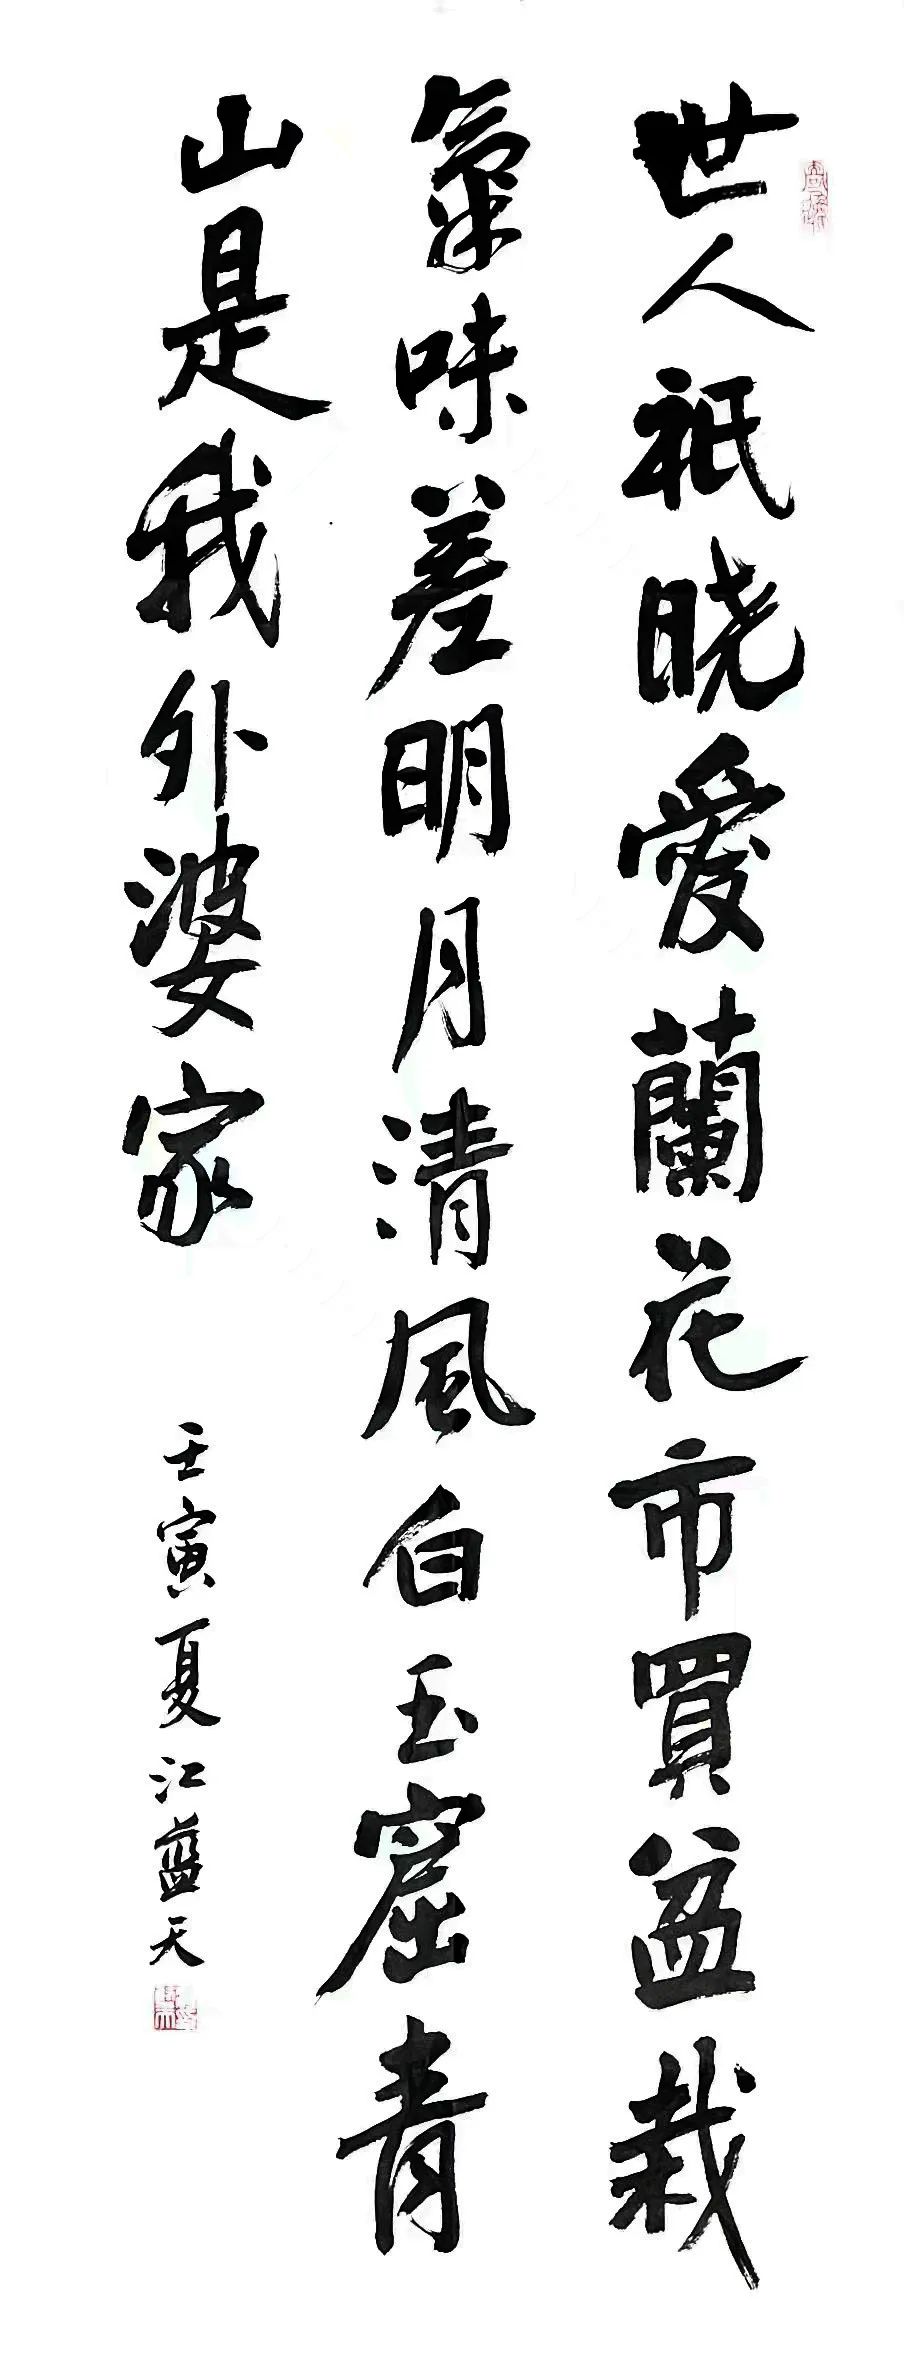 世人祇晓愛蘭花市買盆栽
氣味差明月清風白玉窟青
山是我外婆家
壬寅夏江藍天